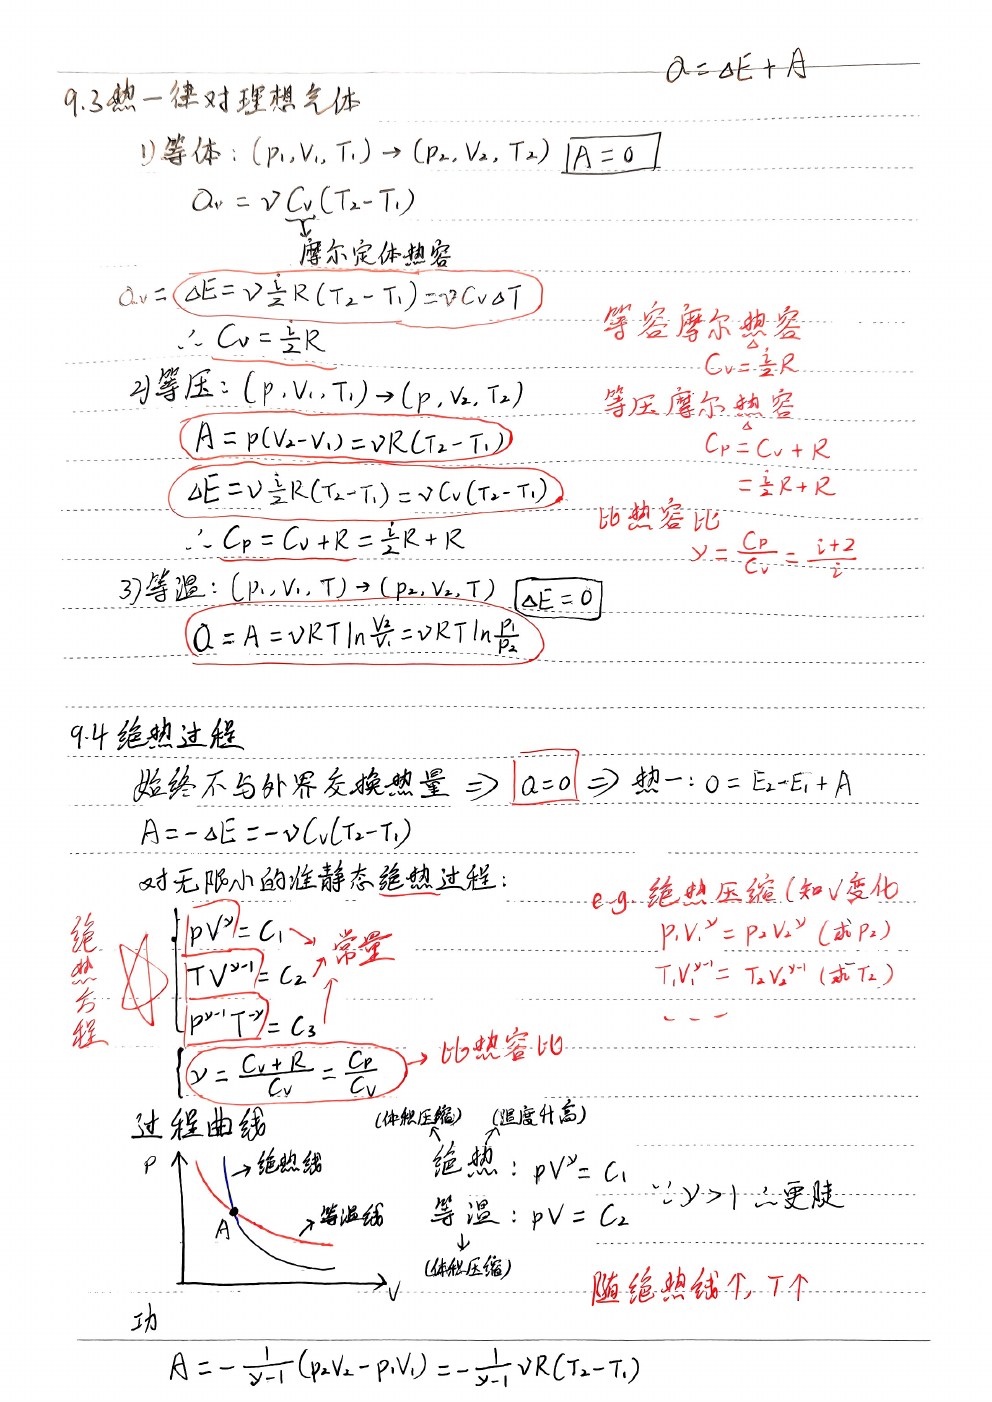 Q = ΔE + A
9.3 热一律对理想气体
1) 等体：(p₁, V₁, T₁) → (p₂, V₂, T₂) A = 0
Qᵥ = ν Cᵥ (T₂ - T₁)
摩尔定体热容
Qᵥ = ΔE = ν i/2 R (T₂ - T₁) = ν Cᵥ ΔT
∴ Cᵥ = i/2 R
等容摩尔热容
Cᵥ = i/2 R
2) 等压：(p, V₁, T₁) → (p, V₂, T₂)
A = p(V₂ - V₁) = νR(T₂ - T₁)
ΔE = ν i/2 R(T₂ - T₁) = ν Cᵥ (T₂ - T₁)
∴ Cₚ = Cᵥ + R = i/2 R + R
等压摩尔热容
Cₚ = Cᵥ + R
= i/2 R + R
比热容比
γ = Cₚ/Cᵥ = (i+2)/i
3) 等温：(p₁, V₁, T) → (p₂, V₂, T) ΔE = 0
Q = A = νRT ln V₂/V₁ = νRT ln p₁/p₂
9.4 绝热过程
始终不与外界交换热量 ⇒ Q = 0 ⇒ 热一：0 = E₂ - E₁ + A
A = -ΔE = -ν Cᵥ (T₂ - T₁)
对无限小的准静态绝热过程：
绝热方程
pV^γ = C₁
TV^(γ-1) = C₂
p^(γ-1) T^(-γ) = C₃
常量
γ = (Cᵥ + R)/Cᵥ = Cₚ/Cᵥ → 比热容比
e.g. 绝热压缩 (知V变化
p₁V₁^γ = p₂V₂^γ (求p₂)
T₁V₁^(γ-1) = T₂V₂^(γ-1) (求T₂)
---
过程曲线
P
绝热线
等温线
A
V
(体积压缩) (温度升高)
绝热：pV^γ = C₁
等温：pV = C₂
(体积压缩)
∵ γ > 1 ∴ 更陡
随绝热线↑, T↑
功
A = - 1/(γ-1) (p₂V₂ - p₁V₁) = - 1/(γ-1) νR(T₂ - T₁)